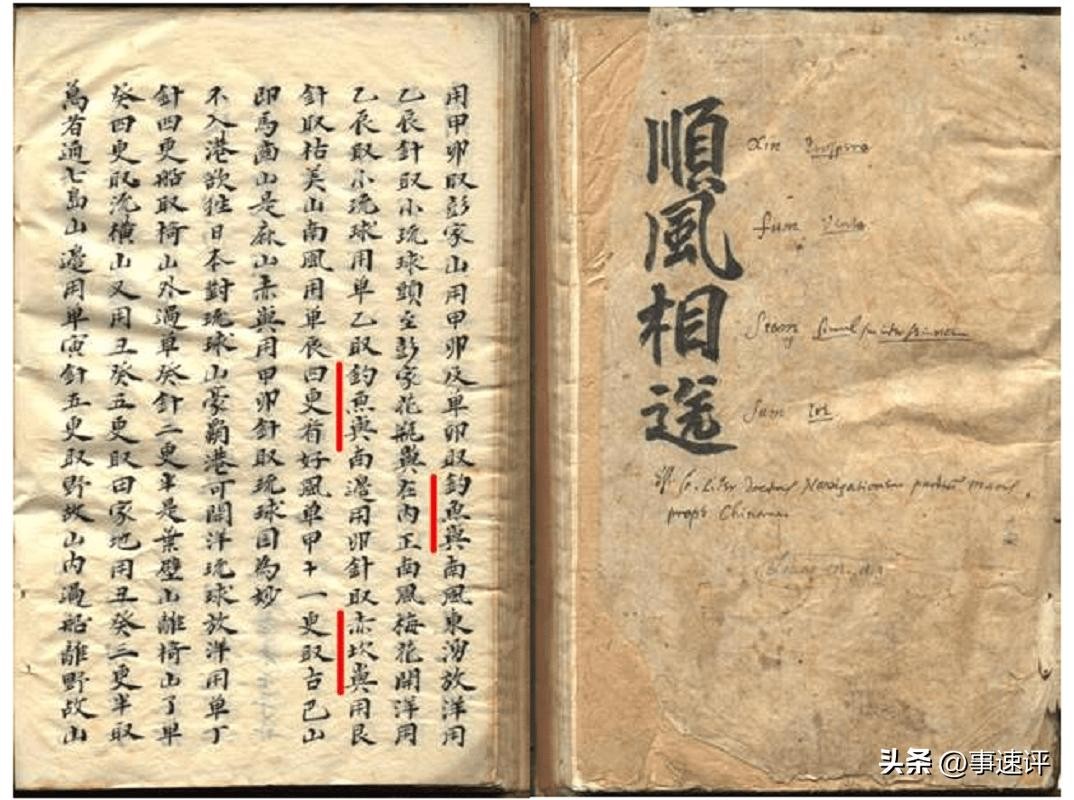 順風相送
Xin prospero
fum vento
Seam
Sum
prope Chinam
用甲卯取彭家山用甲卯及單卯取釣魚嶼南風東湧放洋用
乙辰針取小琉球頭至彭家花瓶嶼在內正南風梅花開洋用
乙辰取小琉球用單乙取釣魚嶼南邊用卯針取赤坎嶼用艮
針取枯美山南風用單辰四更有好風單甲十一更取古巴山
即馬齒山是麻山赤嶼用甲卯針取琉球國為妙
不入港欲往日本對琉球山豪霸港可開洋琉球放洋用單丁
針四更船取椅山外過單癸針二更半是葉壁山離椅山了單
癸四更取流橫山又用丑癸五更取田家地用丑癸三更半取
萬者通七島山邊用單寅針五更取野故山內過船離野故山
头条 @事速评